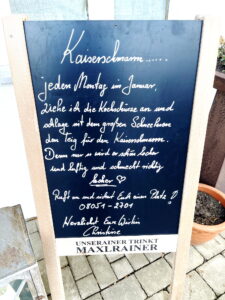 Kaiserschmarrn......
jeden Montag im Januar,
ziehe ich die Kochschürze an und
schlage mit dem großen Schneebesen
den Teig für den Kaiserschmarrn.
Denn nur so wird er schön locker
und luftig und schmeckt richtig
lecker ♡
Ruft an und sichert Euch einen Platz!
08051-2701
Herzlichst Eure Wirtin
Christine
UNSERAINER TRINKT
MAXLRAINER